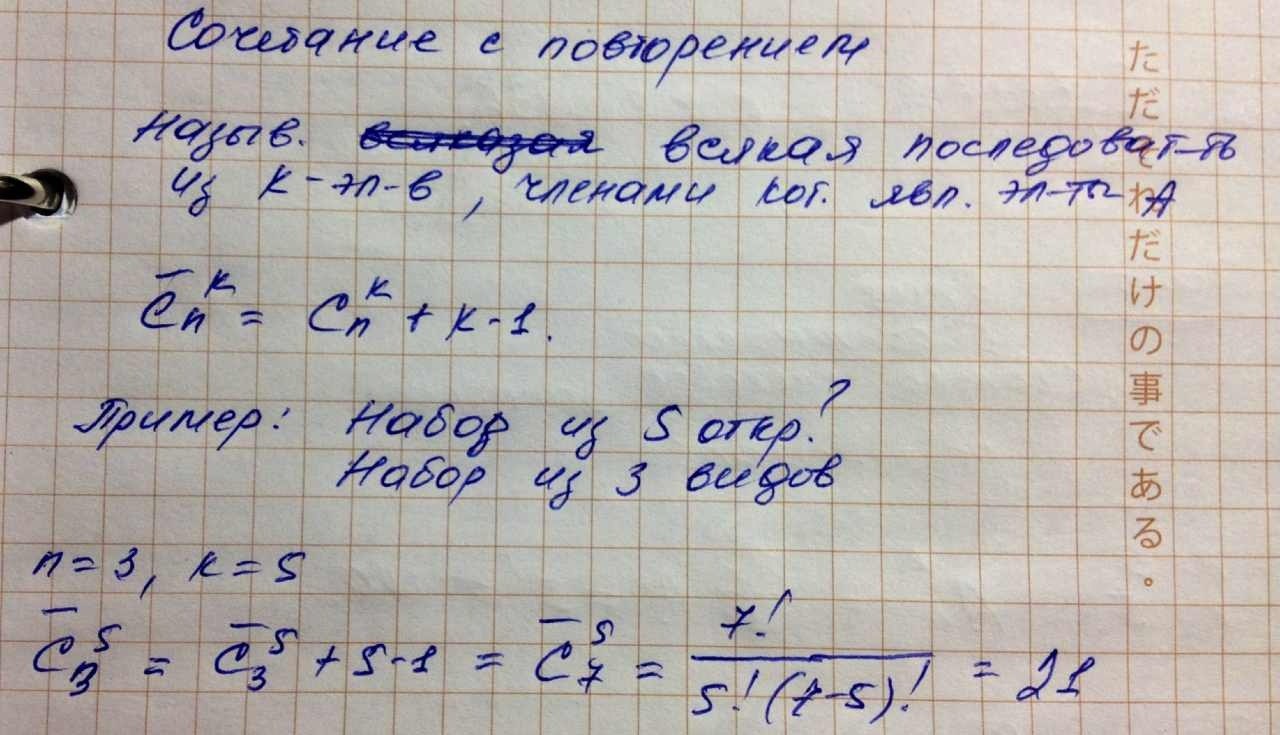 Сочетание с повторением
Назыв. всякая последоват-ть
из к-эл-в, членами кот. явл. эл-ты A
C̅ₙᵏ = Cₙᵏ + к - 1.
Пример: Набор из 5 откр.?
Набор из 3 видов
n = 3, к = 5
C̅₃⁵ = C̅₃⁵ + 5 - 1 = C̅₇⁵ = 7! / 5! (7-5)! = 21
ただ
わだけの事である。